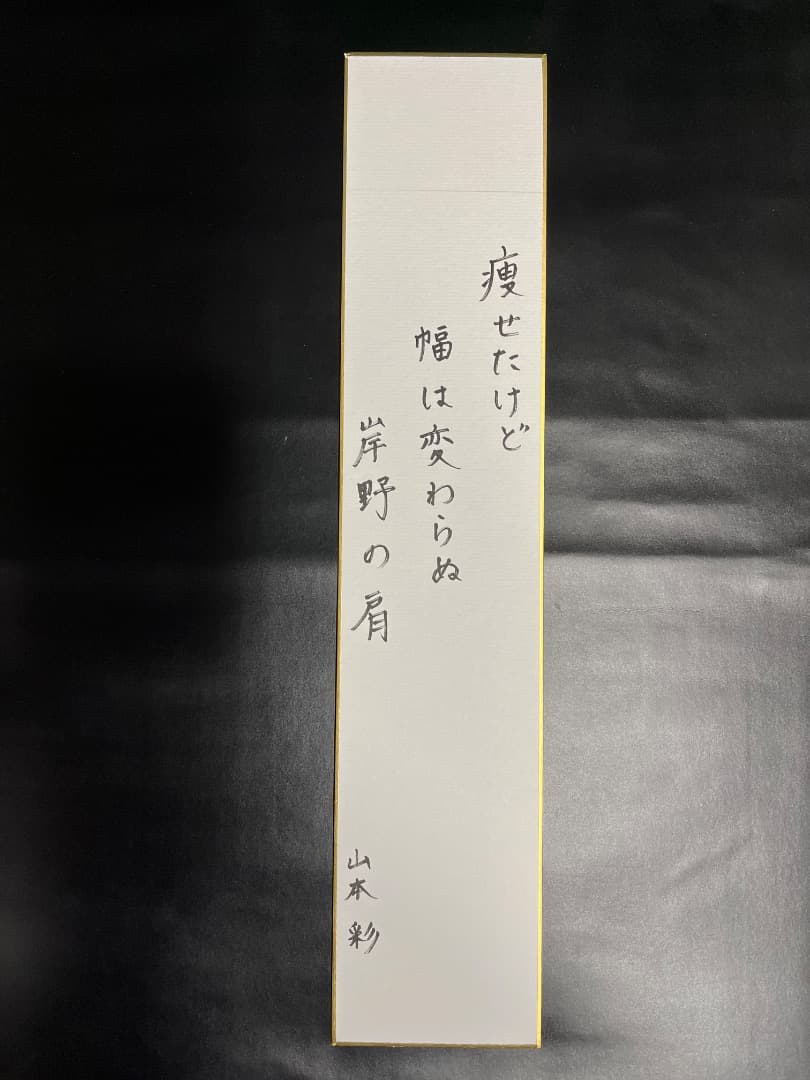 痩せたけど
幅は変わらぬ
岸野の肩
山本彩